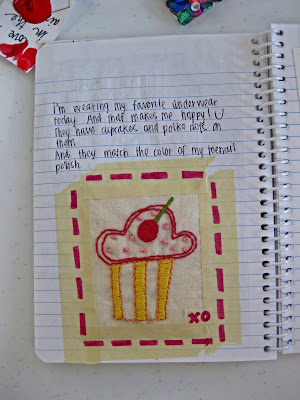 love
is in
the
air
I'm wearing my favorite underwear
today. And that makes me happy! U
They have cupcakes and polka dots on
them
And they match the color of my toenail
polish
XO